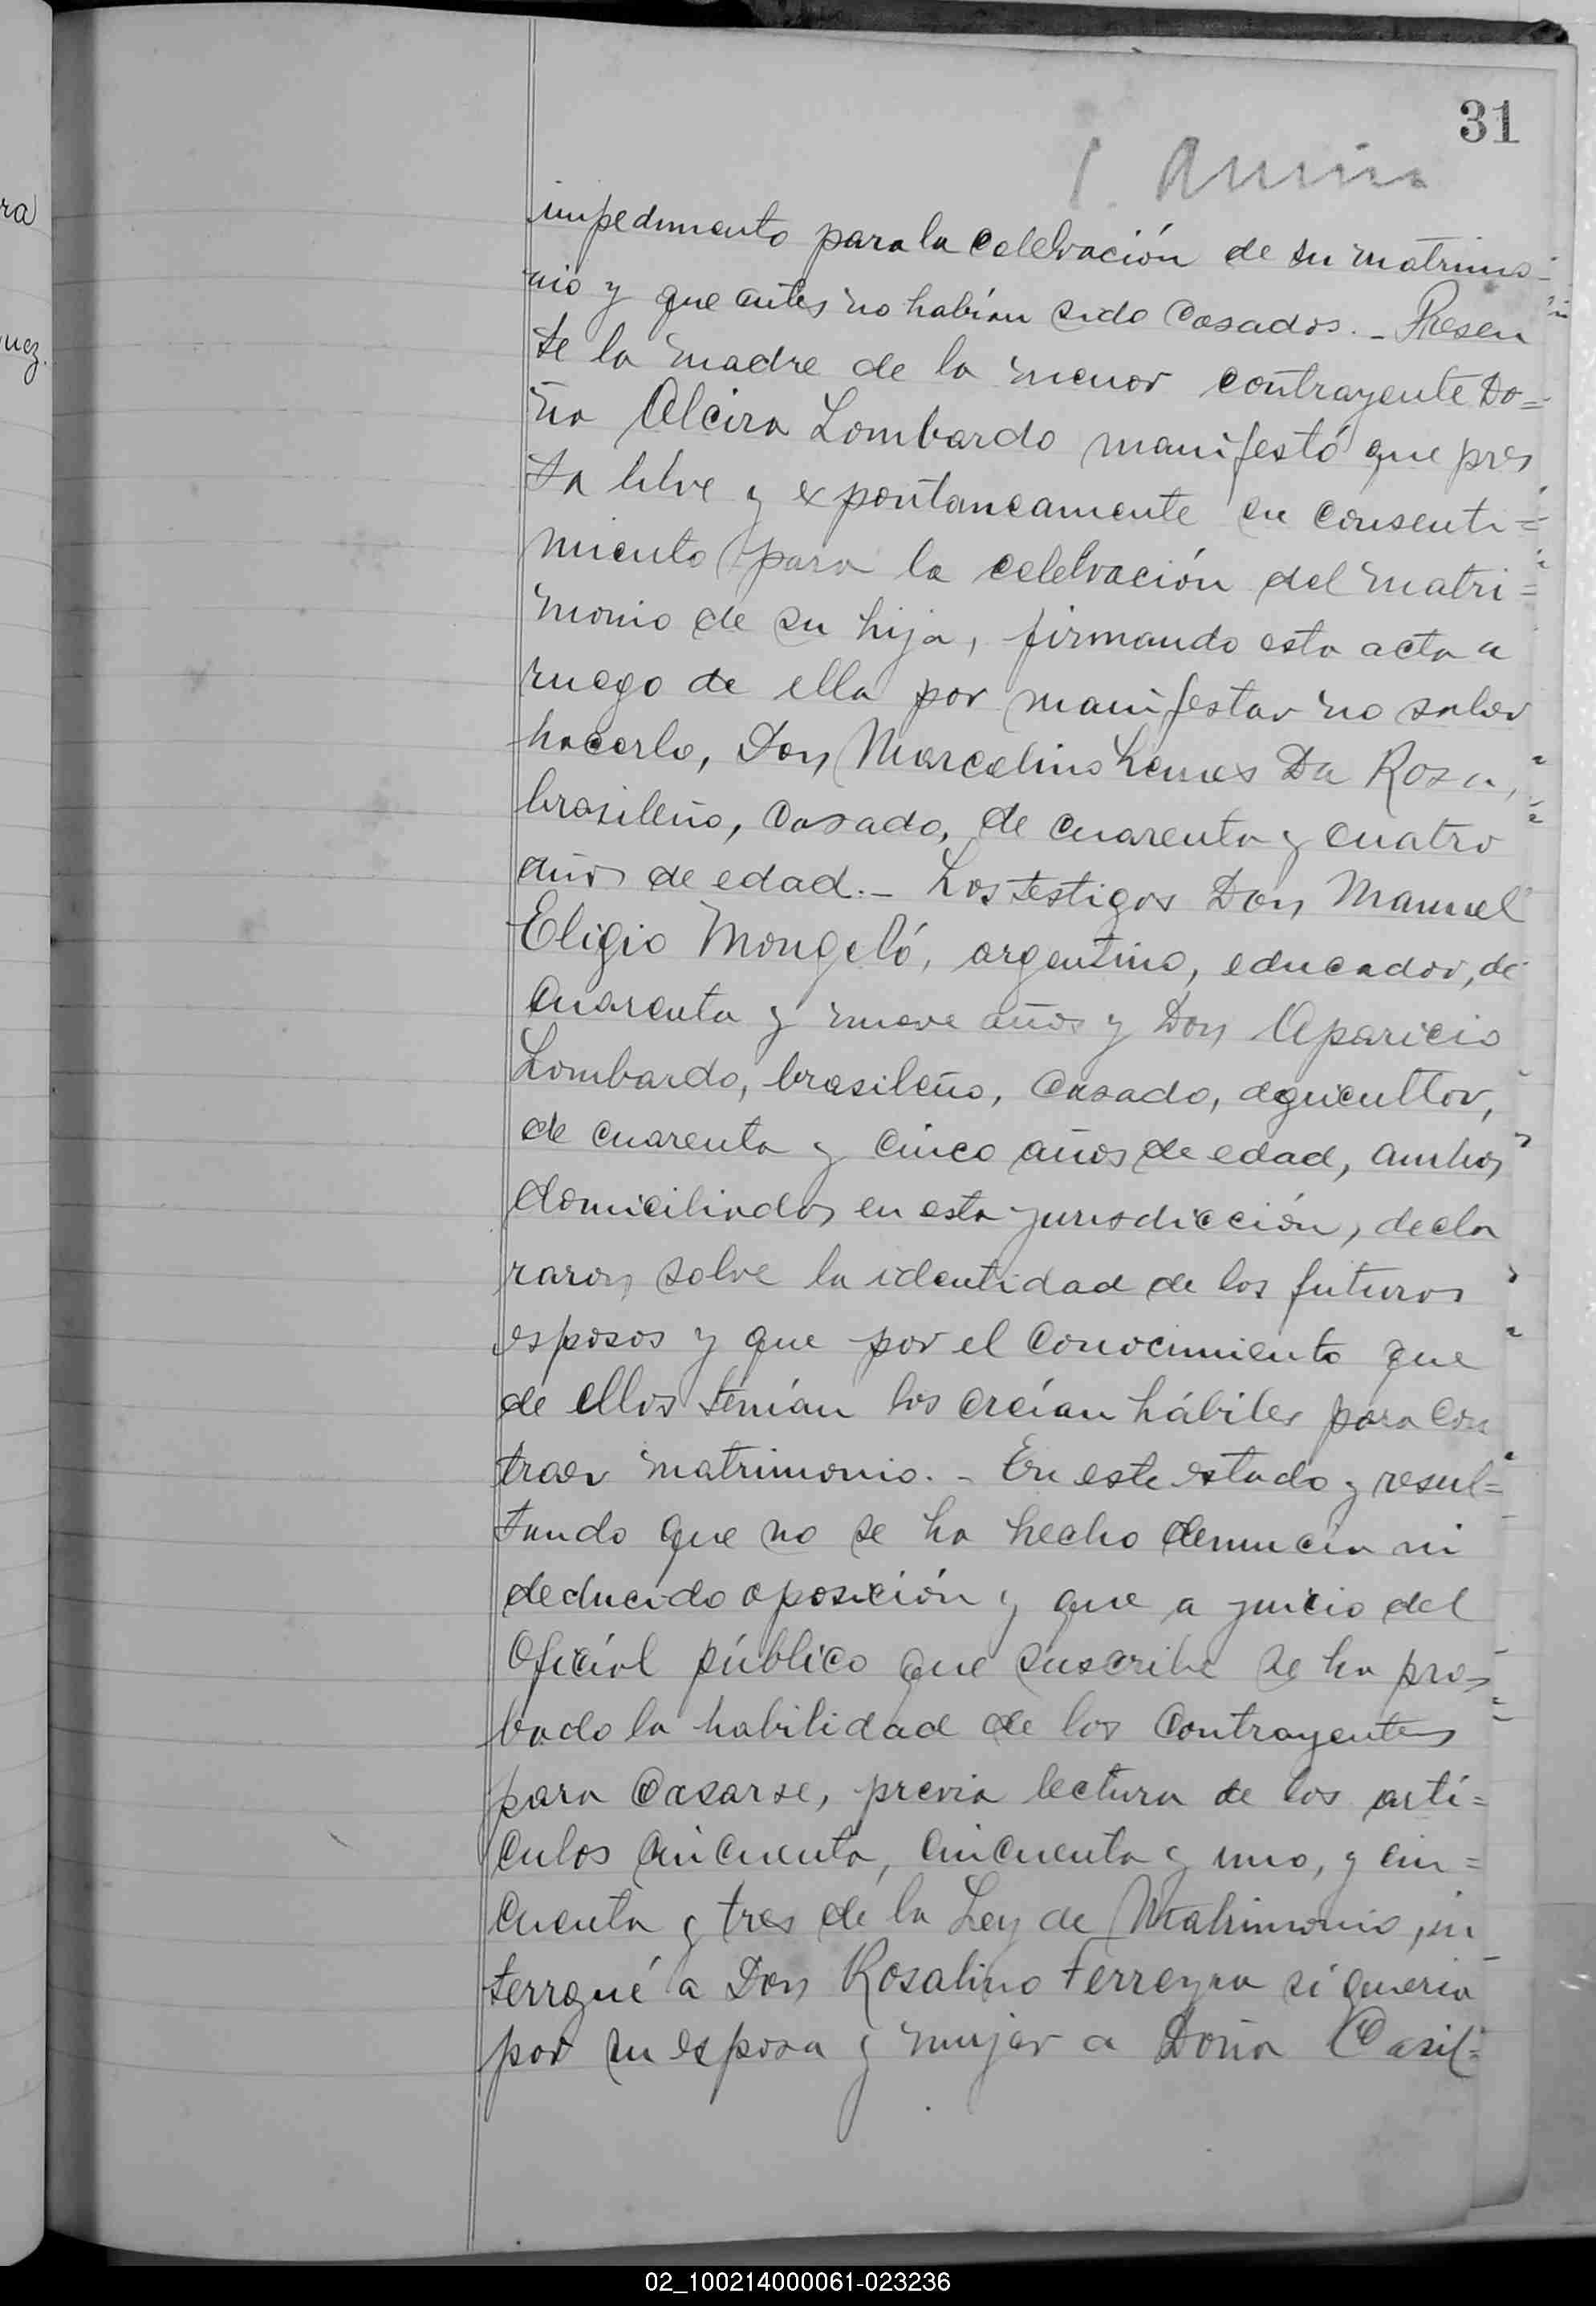 31
ra
uez.
impedimento para la celebración de su matrimo-
nio y que antes no habían sido casados. - Presen
te la madre de la menor contrayente Do=
ña Alcira Lombardo manifestó que pres
ta libre y expontaneamente su consenti=
miento para la celebración del matri=
monio de su hija, firmando esta acta a
ruego de ella por manifestar no saber
hacerlo, Don Marcelino Lemes Da Rosa,
brasileño, casado, de cuarenta y cuatro
años de edad.- Los testigos Don Manuel
Eligio Mongeló, argentino, educador, de
cuarenta y nueve años y Don Aparicio
Lombardo, brasileño, casado, agricultor,
de cuarenta y cinco años de edad, ambos
domiciliados en esta jurisdicción, decla
raron sobre la identidad de los futuros
esposos y que por el conocimiento que
de ellos tenían los creían hábiles para con
traer matrimonio. - En este estado y resul=
tando que no se ha hecho denuncia ni
deducido oposición y que a juicio del
Oficial público que suscribe se ha pro-
bado la habilidad de los contrayentes
para casarse, previa lectura de los artí=
culos cincuenta, cincuenta y uno, y cin=
cuenta y tres de la Ley de Matrimonio, in
terrgué a Don Rosalino Ferreyra si quería
por su esposa y mujer a Doña Casil=
02_100214000061-023236